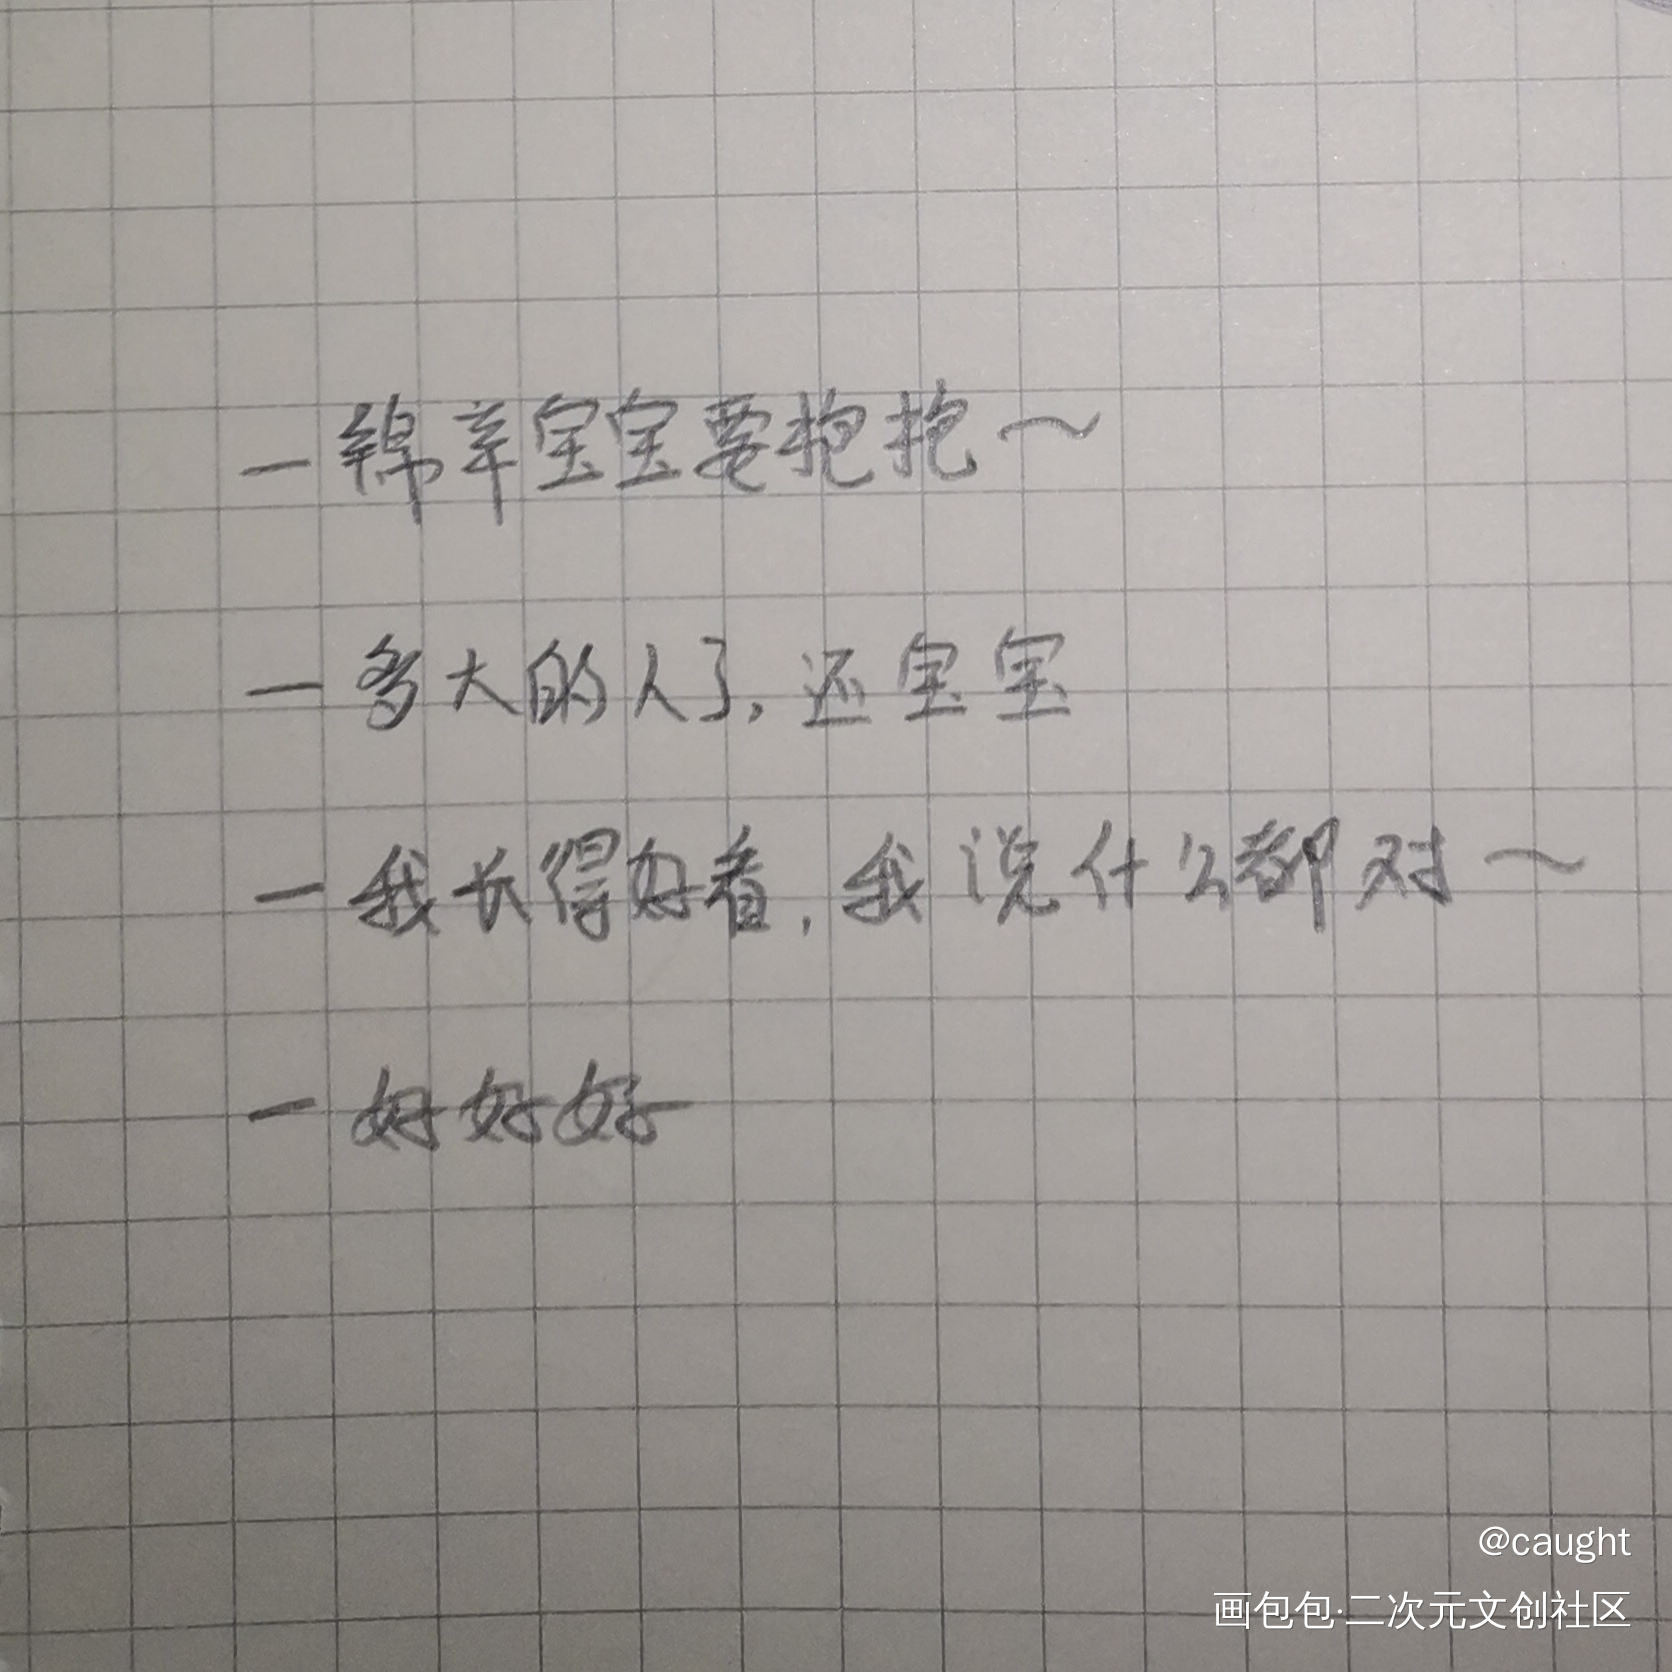 一锦辛宝宝要抱抱～
一多大的人了,还宝宝
一我长得好看,我说什么都对～
一好好好
@caught
画包包·二次元文创社区